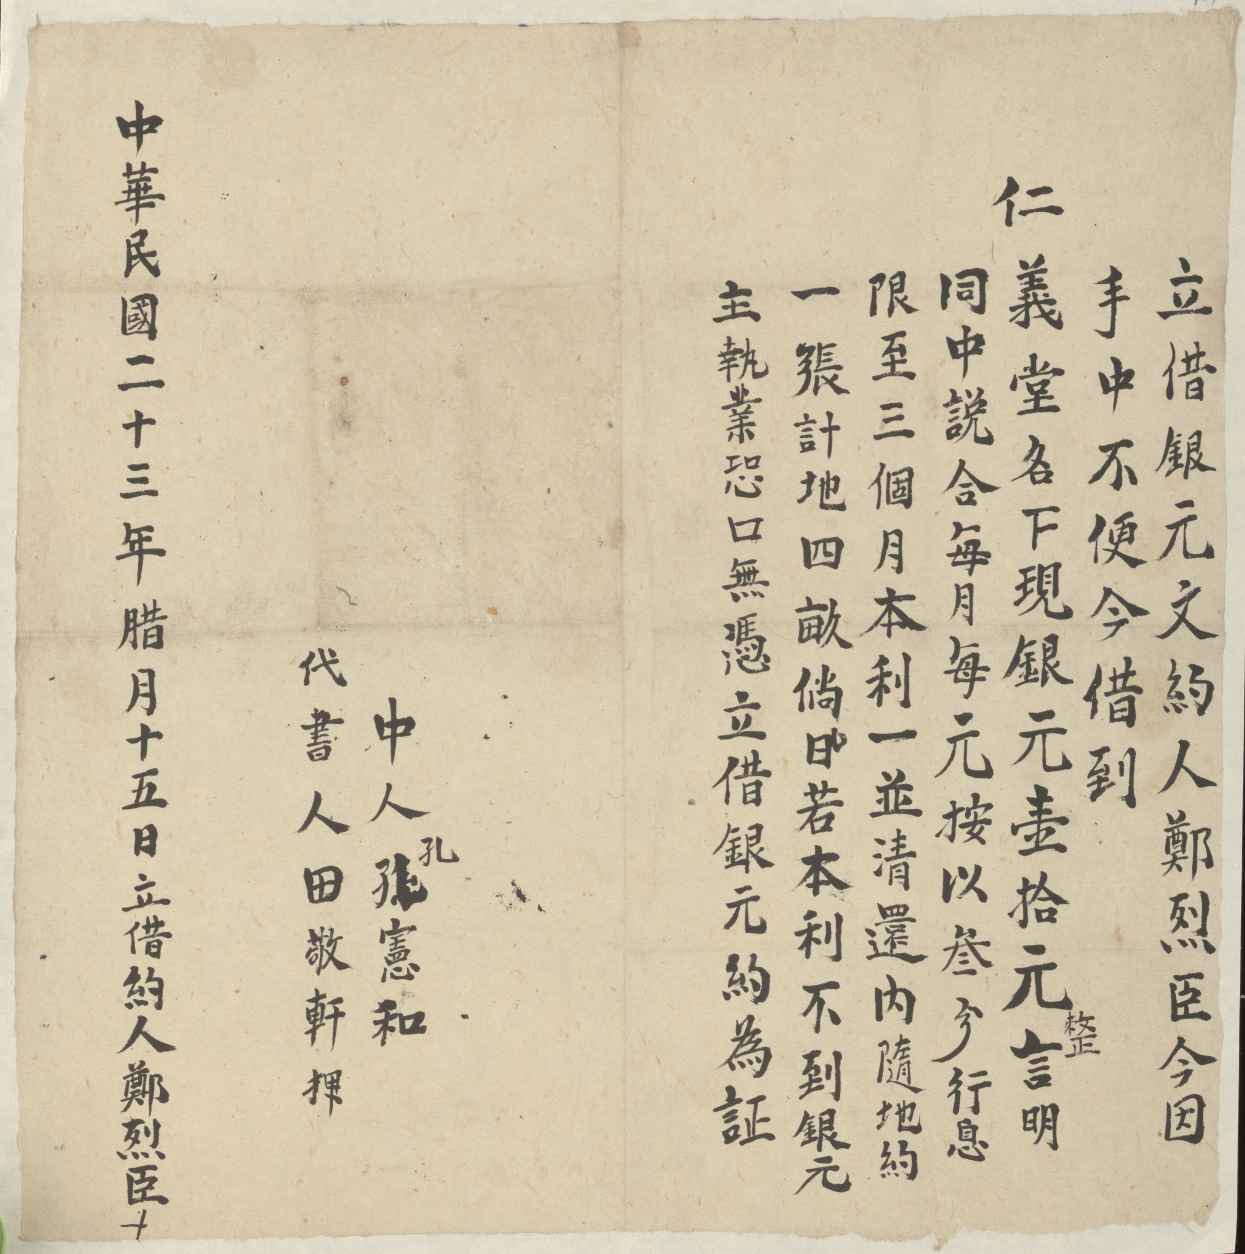 立借銀元文約人鄭烈臣今因
手中不便今借到
仁義堂名下現銀元壹拾元整言明
同中説合每月每元按以叁分行息
限至三個月本利一並清還內隨地約
一張計地四畝倘日若本利不到銀元
主執業恐口無憑立借銀元約為証
中人孔憲和
代書人田敬軒
中華民國二十三年腊月十五日立借約人鄭烈臣十